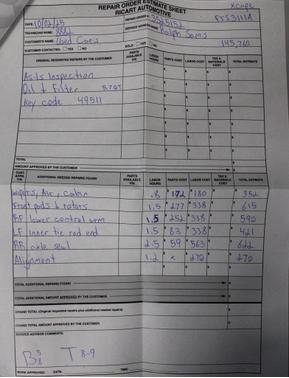 REPAIR ORDER ESTIMATE SHEET
RICART AUTOMOTIVE
DATE 10/02/25
TECHNICIAN NAME
CUSTOMER'S NAME Used Cars
CUSTOMER CONTACTED YES NO
Ralph Sams
145,760
ORIGINAL REQUESTED REPAIRS (BY CUSTOMER) PARTS AVAILABLE LABOR HOURS PARTS COST LABOR COST TAX & MATERIALS COST TOTAL ESTIMATE
As-Is Inspection
Oil & Filter
Key code 49511
TOTAL
AMOUNT APPROVED BY THE CUSTOMER
ADDITIONAL NEEDED REPAIRS FOUND PARTS AVAILABLE LABOR HOURS PARTS COST LABOR COST TAX & MATERIALS COST TOTAL ESTIMATE
Wipers, Air, Cabin .8 172 180 352
Front pads & rotors 1.5 277 338 615
RF lower control arm 1.5 252 338 590
LF Inner tie rod end 1.5 83 338 421
RR axle seal 2.5 59 563 622
Alignment 1.2 x 270 270
TOTAL ADDITIONAL REPAIRS FOUND
TOTAL ADDITIONAL AMOUNT APPROVED BY THE CUSTOMER
GRAND TOTAL (original requested repairs plus additional needed repairs)
GRAND TOTAL AMOUNT APPROVED BY THE CUSTOMER
SERVICE ADVISOR COMMENTS:
T 8-9
WORK APPROVED DATE TIME